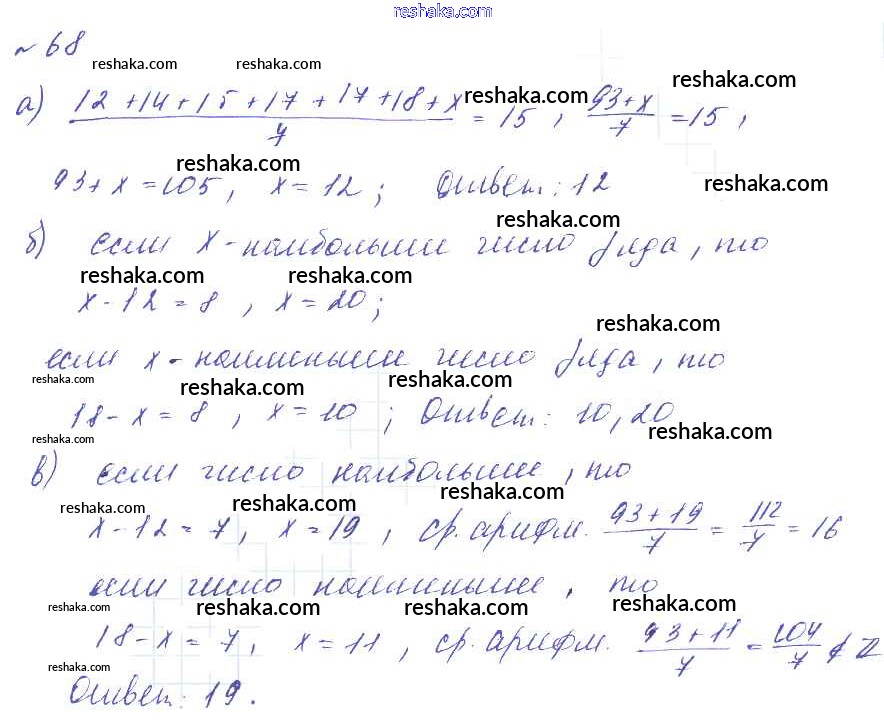 reshaka.com
№68
reshaka.com reshaka.com
а) (12+14+15+17+17+18+x)/7 = 15, (93+x)/7 = 15,
reshaka.com reshaka.com
reshaka.com
93+x=105, x=12; Ответ: 12
reshaka.com
reshaka.com
б) если x-наибольшее число ряда, то
reshaka.com reshaka.com
x-12=8, x=20;
reshaka.com
если x-наименьшее число ряда, то
reshaka.com reshaka.com reshaka.com
18-x=8, x=10; Ответ: 10, 20
reshaka.com reshaka.com
в) если число наибольшее, то
reshaka.com reshaka.com reshaka.com
x-12=7, x=19, ср. арифм. (93+19)/7 = 112/7 = 16
если число наименьшее, то
reshaka.com reshaka.com reshaka.com reshaka.com
18-x=7, x=11, ср. арифм. (93+11)/7 = 104/7 ∉ Z
reshaka.com
Ответ: 19.